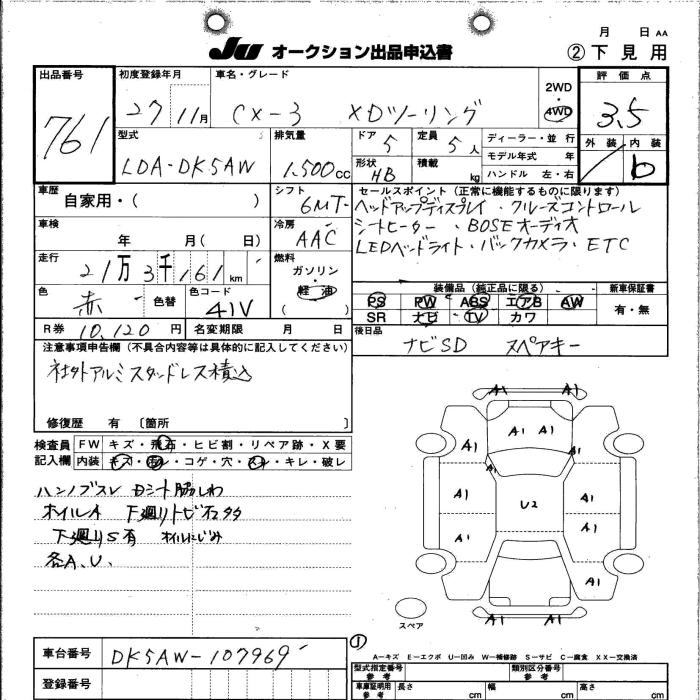 月 日 AA
JU オークション出品申込書
② 下見用
出品番号 761
初度登録年月 27年 11月
車名・グレード CX-3 XDツーリング
2WD
4WD
評価点 3.5
外装 内装 b
型式 LDA-DK5AW
排気量 1,500cc
ドア 5
定員 5人
形状 HB
積載 kg
ディーラー・並行
モデル年式 年
ハンドル 左・右
車歴 自家用・( )
シフト 6MT
セールスポイント(正常に機能するものに限ります)
ヘッドアップディスプレイ・クルーズコントロール
シートヒーター・BOSEオーディオ
LEDヘッドライト・バックカメラ・ETC
車検 年 月( 日)
冷房 AAC
走行 21万3千161km
燃料 ガソリン・軽油 ( )
色 赤 色替
色コード 41V
装備品(純正品に限る)
PS PW ABS エアB AW
SR ナビ TV カワ
新車保証書 有・無
R券 10,120円
名変期限 月 日
後日品 ナビSD スペアキー
注意事項申告欄(不具合内容等は具体的に記入してください)
社外アルミスタッドレス積込
修復歴 有〔箇所 〕
検査員記入欄
FW キズ・飛石・ヒビ割・リペア跡・X要
内装 キズ・汚レ・コゲ・穴・スレ・キレ・破レ
ハンノブスレ Dシート脇しわ
ホイルA 下廻りトビ石キズ
下廻りS有 オイルにじみ
各A.U.
A1 A1
A1 A1
A1 A1
A1 A1
U2
A1 A1
A1
A1 A1
スペア
①
A-キズ E-エクボ U-凹み W-補修跡 S-サビ C-腐食 XX-交換済
車台番号 DK5AW-107969
登録番号
型式指定番号 参考
類別区分番号 参考
車庫証明用 参考 長さ cm 幅 cm 高さ cm